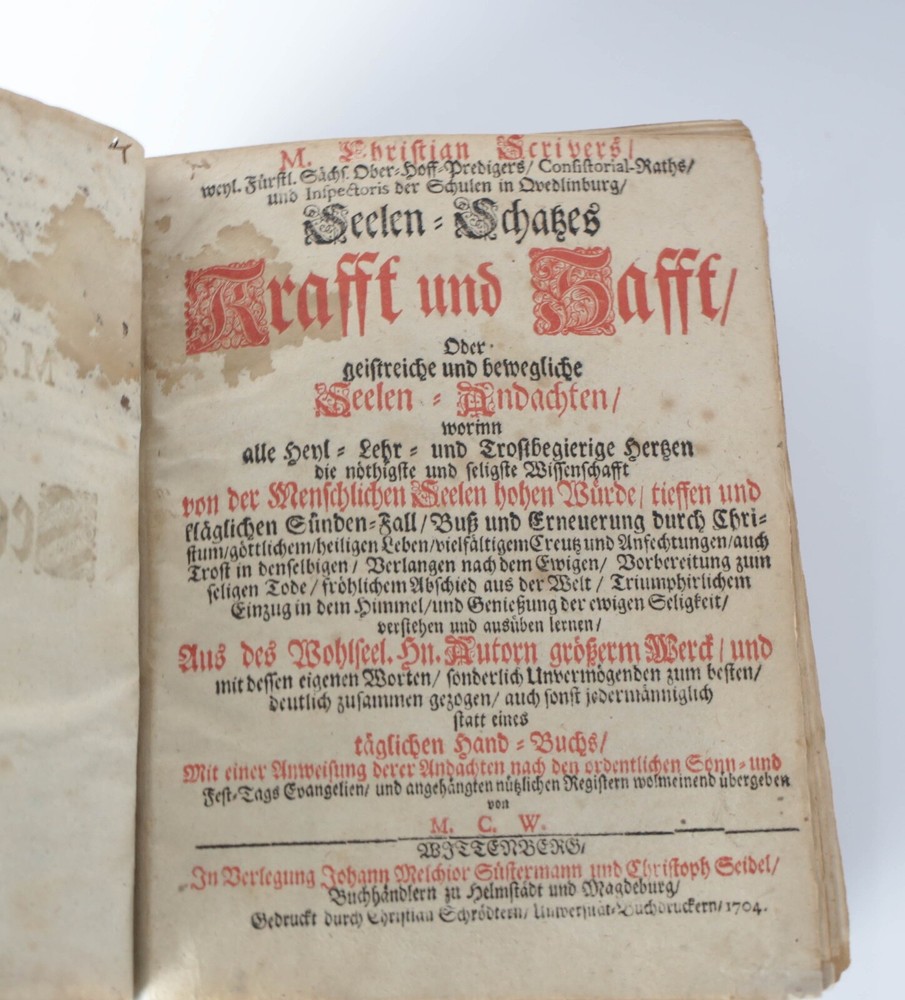 M. Christian Scrivers/
weyl. Fürstl. Sächs. Ober-Hoff-Predigers/ Consistorial-Raths/
und Inspectoris der Schulen in Qvedlinburg/
Seelen-Schatzes
Krafft und Safft/
Oder
geistreiche und bewegliche
Seelen-Andachten/
worinn
alle Heyl-Lehr- und Trostbegierige Hertzen
die nöthigste und seligste Wissenschafft
von der Menschlichen Seelen hohen Würde/ tieffen und
kläglichen Sünden-Fall/ Buß und Erneuerung durch Chri-
stum/ göttlichem/ heiligen Leben/ vielfältigem Creutz und Anfechtungen/ auch
Trost in denselbigen/ Verlangen nach dem Ewigen/ Vorbereitung zum
seligen Tode/ fröhlichem Abschied aus der Welt/ Triumphirlichem
Einzug in dem Himmel/ und Genießung der ewigen Seligkeit/
verstehen und ausüben lernen/
Aus des Wohlseel. Hn. Autorn größerm Werck/ und
mit dessen eigenen Worten/ sonderlich Unvermögenden zum besten/
deutlich zusammen gezogen/ auch sonst jedermänniglich
statt eines
täglichen Hand-Buchs/
Mit einer Anweisung derer Andachten nach den ordentlichen Sonn- und
Fest-Tags Evangelien/ und angehängten nützlichen Registern wolmeinend übergeben
von
M. C. W.
WITTENBERG/
In Verlegung Johann Melchior Süstermann und Christoph Seidel/
Buchhändlern zu Helmstädt und Magdeburg/
Gedruckt durch Christian Schrödtern/ Universität-Buchdruckern/ 1704.